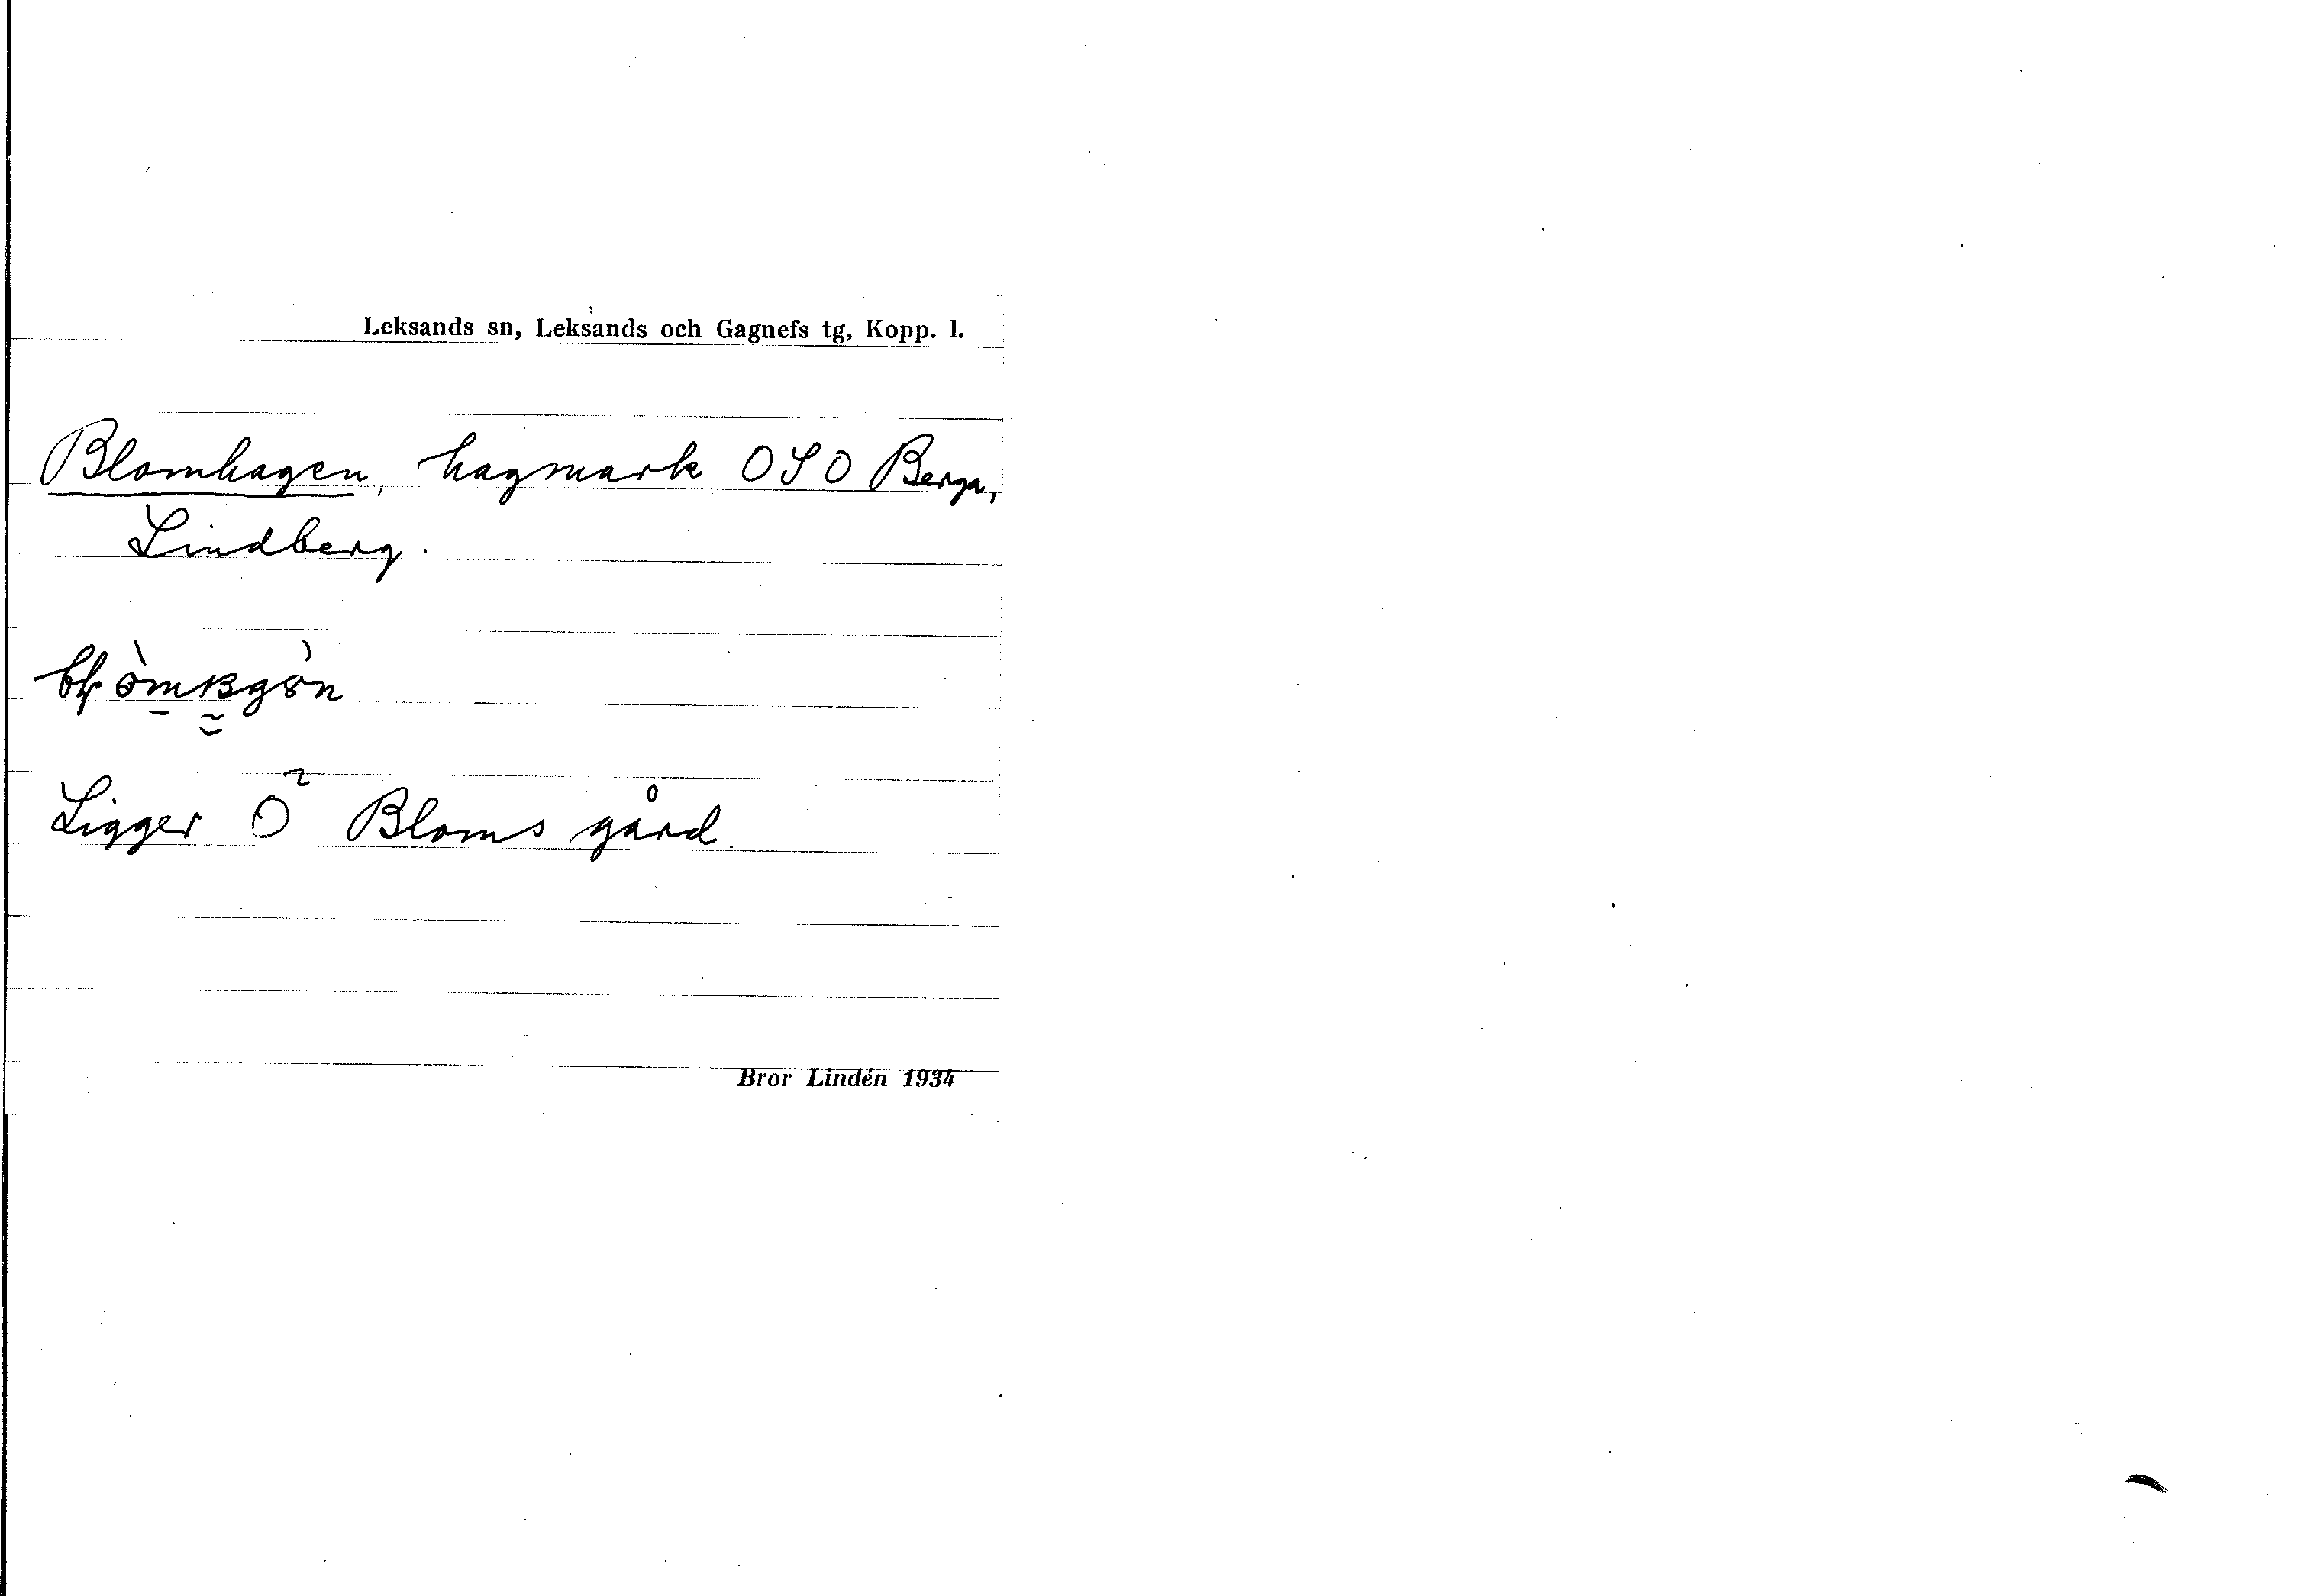 Leksands sn, Leksands och Gagnefs tg, Kopp. l.
Blomhagen, hagmark OSO Berga,
Lindberg.
Ligger O Bloms gård.
Bror Lindén 1934